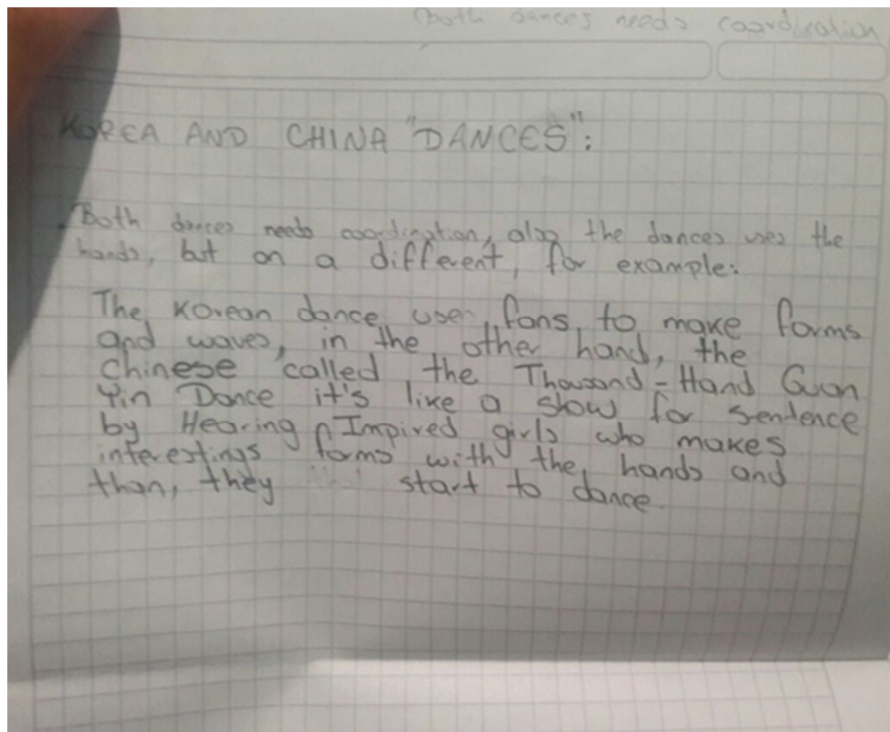 Both dances needs coordination
KOREA AND CHINA "DANCES":
Both dances needs coordination, also the dances uses the
hands, but on a different, for example:
The Korean dance use fans to make forms
and waves, in the other hand, the
chinese called the Thousand-Hand Guan
Yin Dance it's like a slow for sentence
by Hearing Impired girls who makes
interestings forms with the hands and
than, they start to dance